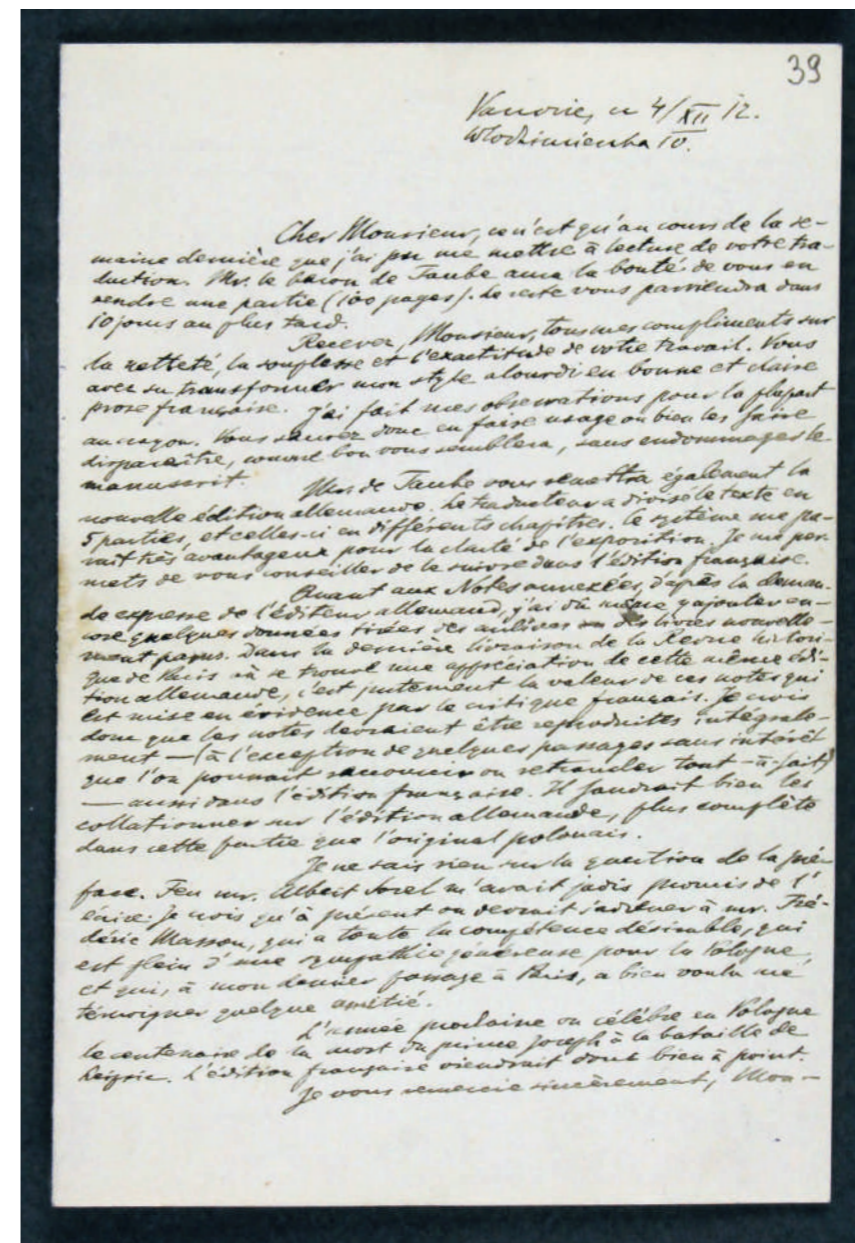 39
Varsovie, ce 4/XII 12.
Włodzimierska 10.
Cher Monsieur, ce n'est qu'au cours de la se-
maine dernière que j'ai pu me mettre à lecture de votre tra-
duction. Mr. le baron de Taube aura la bonté de vous en
rendre une partie (100 pages). Le reste vous parviendra dans
10 jours au plus tard.
Recevez, Monsieur, tous mes compliments sur
la netteté, la souplesse et l'exactitude de votre travail. Vous
avez su transformer mon style alourdi en bonne et claire
prose française. J'ai fait mes observations pour la plupart
au crayon. Vous saurez donc en faire usage ou bien les faire
disparaître, comme bon vous semblera, sans endommager le
manuscrit.
Mr. de Taube vous remettra également la
nouvelle édition allemande. Le traducteur a divisé le texte en
5 parties, et celles-ci en différents chapitres. Ce système me pa-
rait très avantageux pour la clarté de l'exposition. Je me per-
mets de vous conseiller de le suivre dans l'édition française.
Quant aux Notes annexées, d'après la deman-
de expresse de l'éditeur allemand, j'ai dû même y ajouter en-
core quelques données tirées des archives ou des livres nouvelle-
ment parus. Dans la dernière livraison de la Revue histori-
que de Paris où se trouve une appréciation de cette même édi-
tion allemande, c'est justement la valeur de ces notes qui
est mise en évidence par le critique français. Je crois
donc que les notes devraient être reproduites intégrale-
ment — (à l'exception de quelques passages sans intérêt
que l'on pourrait raccourcir ou retrancher tout-à-fait)
— aussi dans l'édition française. Il faudrait bien les
collationner sur l'édition allemande, plus complète
dans cette partie que l'original polonais.
Je ne sais rien sur la question de la pré-
face. Feu mr. Albert Sorel m'avait jadis promis de l'
écrire. Je crois qu'à présent on devrait s'adresser à mr. Fré-
déric Masson, qui a toute la compétence désirable, qui
est plein d'une sympathie généreuse pour la Pologne,
et qui, à mon dernier passage à Paris, a bien voulu me
témoigner quelque amitié.
L'année prochaine on célèbre en Pologne
le centenaire de la mort du prince Joseph à la bataille de
Leipsic. L'édition française viendrait donc bien à point.
Je vous remercie sincèrement, Mon-